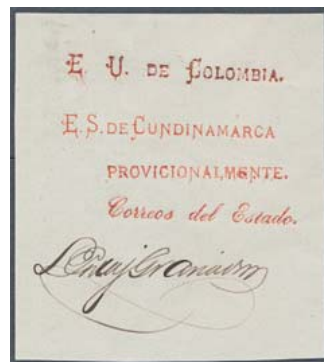 E. U. DE COLOMBIA.
E. S. DE CUNDINAMARCA
PROVICIONALMENTE.
Correos del Estado.